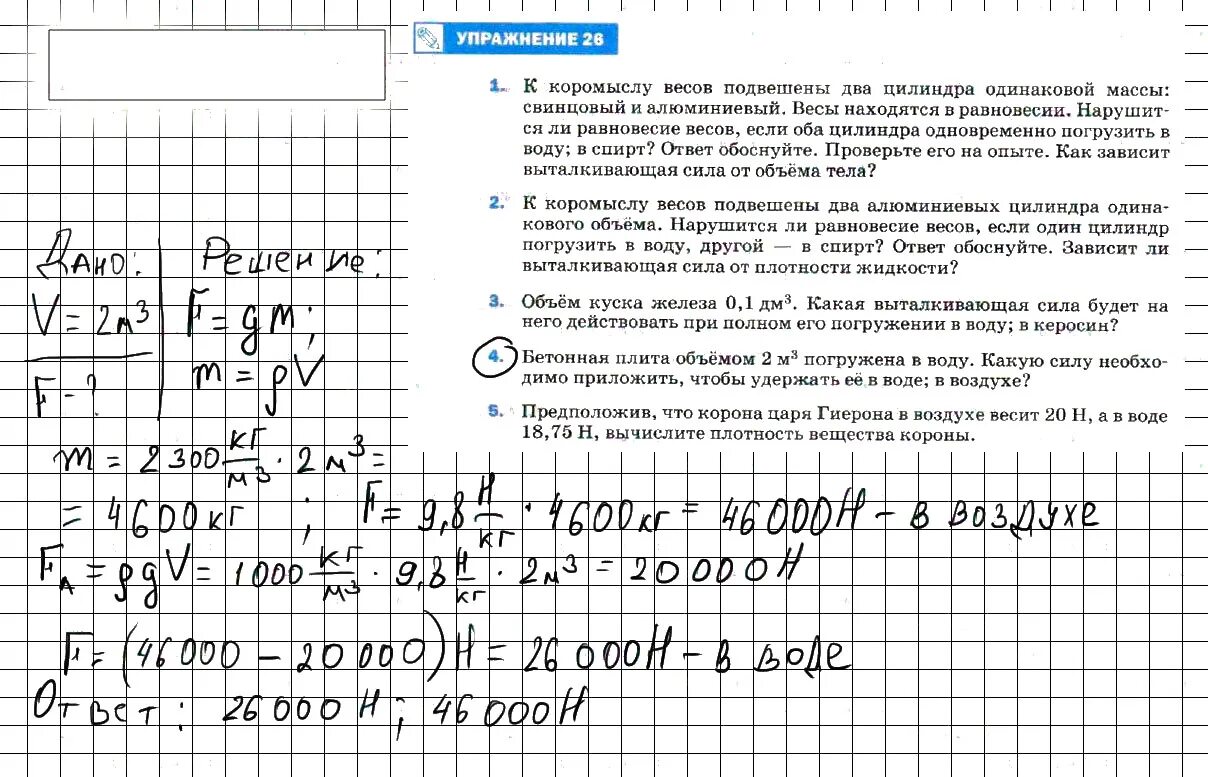 УПРАЖНЕНИЕ 26
1. К коромыслу весов подвешены два цилиндра одинаковой массы:
свинцовый и алюминиевый. Весы находятся в равновесии. Нарушит-
ся ли равновесие весов, если оба цилиндра одновременно погрузить в
воду; в спирт? Ответ обоснуйте. Проверьте его на опыте. Как зависит
выталкивающая сила от объёма тела?
2. К коромыслу весов подвешены два алюминиевых цилиндра одина-
кового объёма. Нарушится ли равновесие весов, если один цилиндр
погрузить в воду, другой — в спирт? Ответ обоснуйте. Зависит ли
выталкивающая сила от плотности жидкости?
3. Объём куска железа 0,1 дм³. Какая выталкивающая сила будет на
него действовать при полном его погружении в воду; в керосин?
4. Бетонная плита объёмом 2 м³ погружена в воду. Какую силу необхо-
димо приложить, чтобы удержать её в воде; в воздухе?
5. Предположив, что корона царя Гиерона в воздухе весит 20 Н, а в воде
18,75 Н, вычислите плотность вещества короны.
Дано: Решение:
V = 2м³ F = gm;
F - ? m = ρV
m = 2300 кг/м³ · 2м³ =
= 4600кг ; F = 9,8 Н/кг · 4600кг = 46000Н - в воздухе
Fᴀ = ρgV = 1000 кг/м³ · 9,8 Н/кг · 2м³ = 20000Н
F = (46000 - 20000)Н = 26000Н - в воде
Ответ: 26000Н; 46000Н